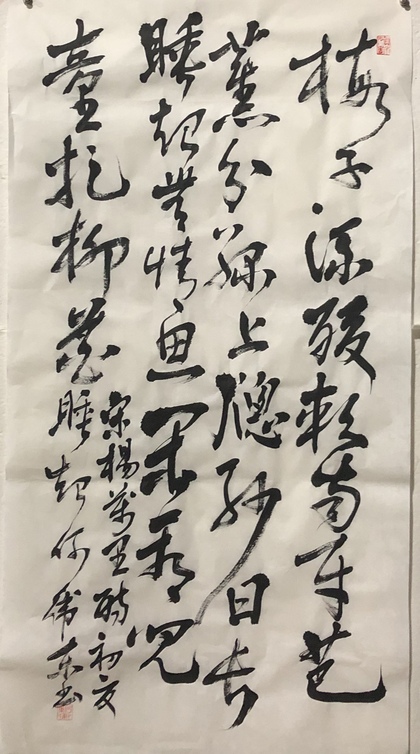 梅子流酸軟齒牙芭
蕉分綠上牕紗日長
睡起無情思閒看兒
童捉柳花
宋楊萬里詩初夏
睡起何偉東书